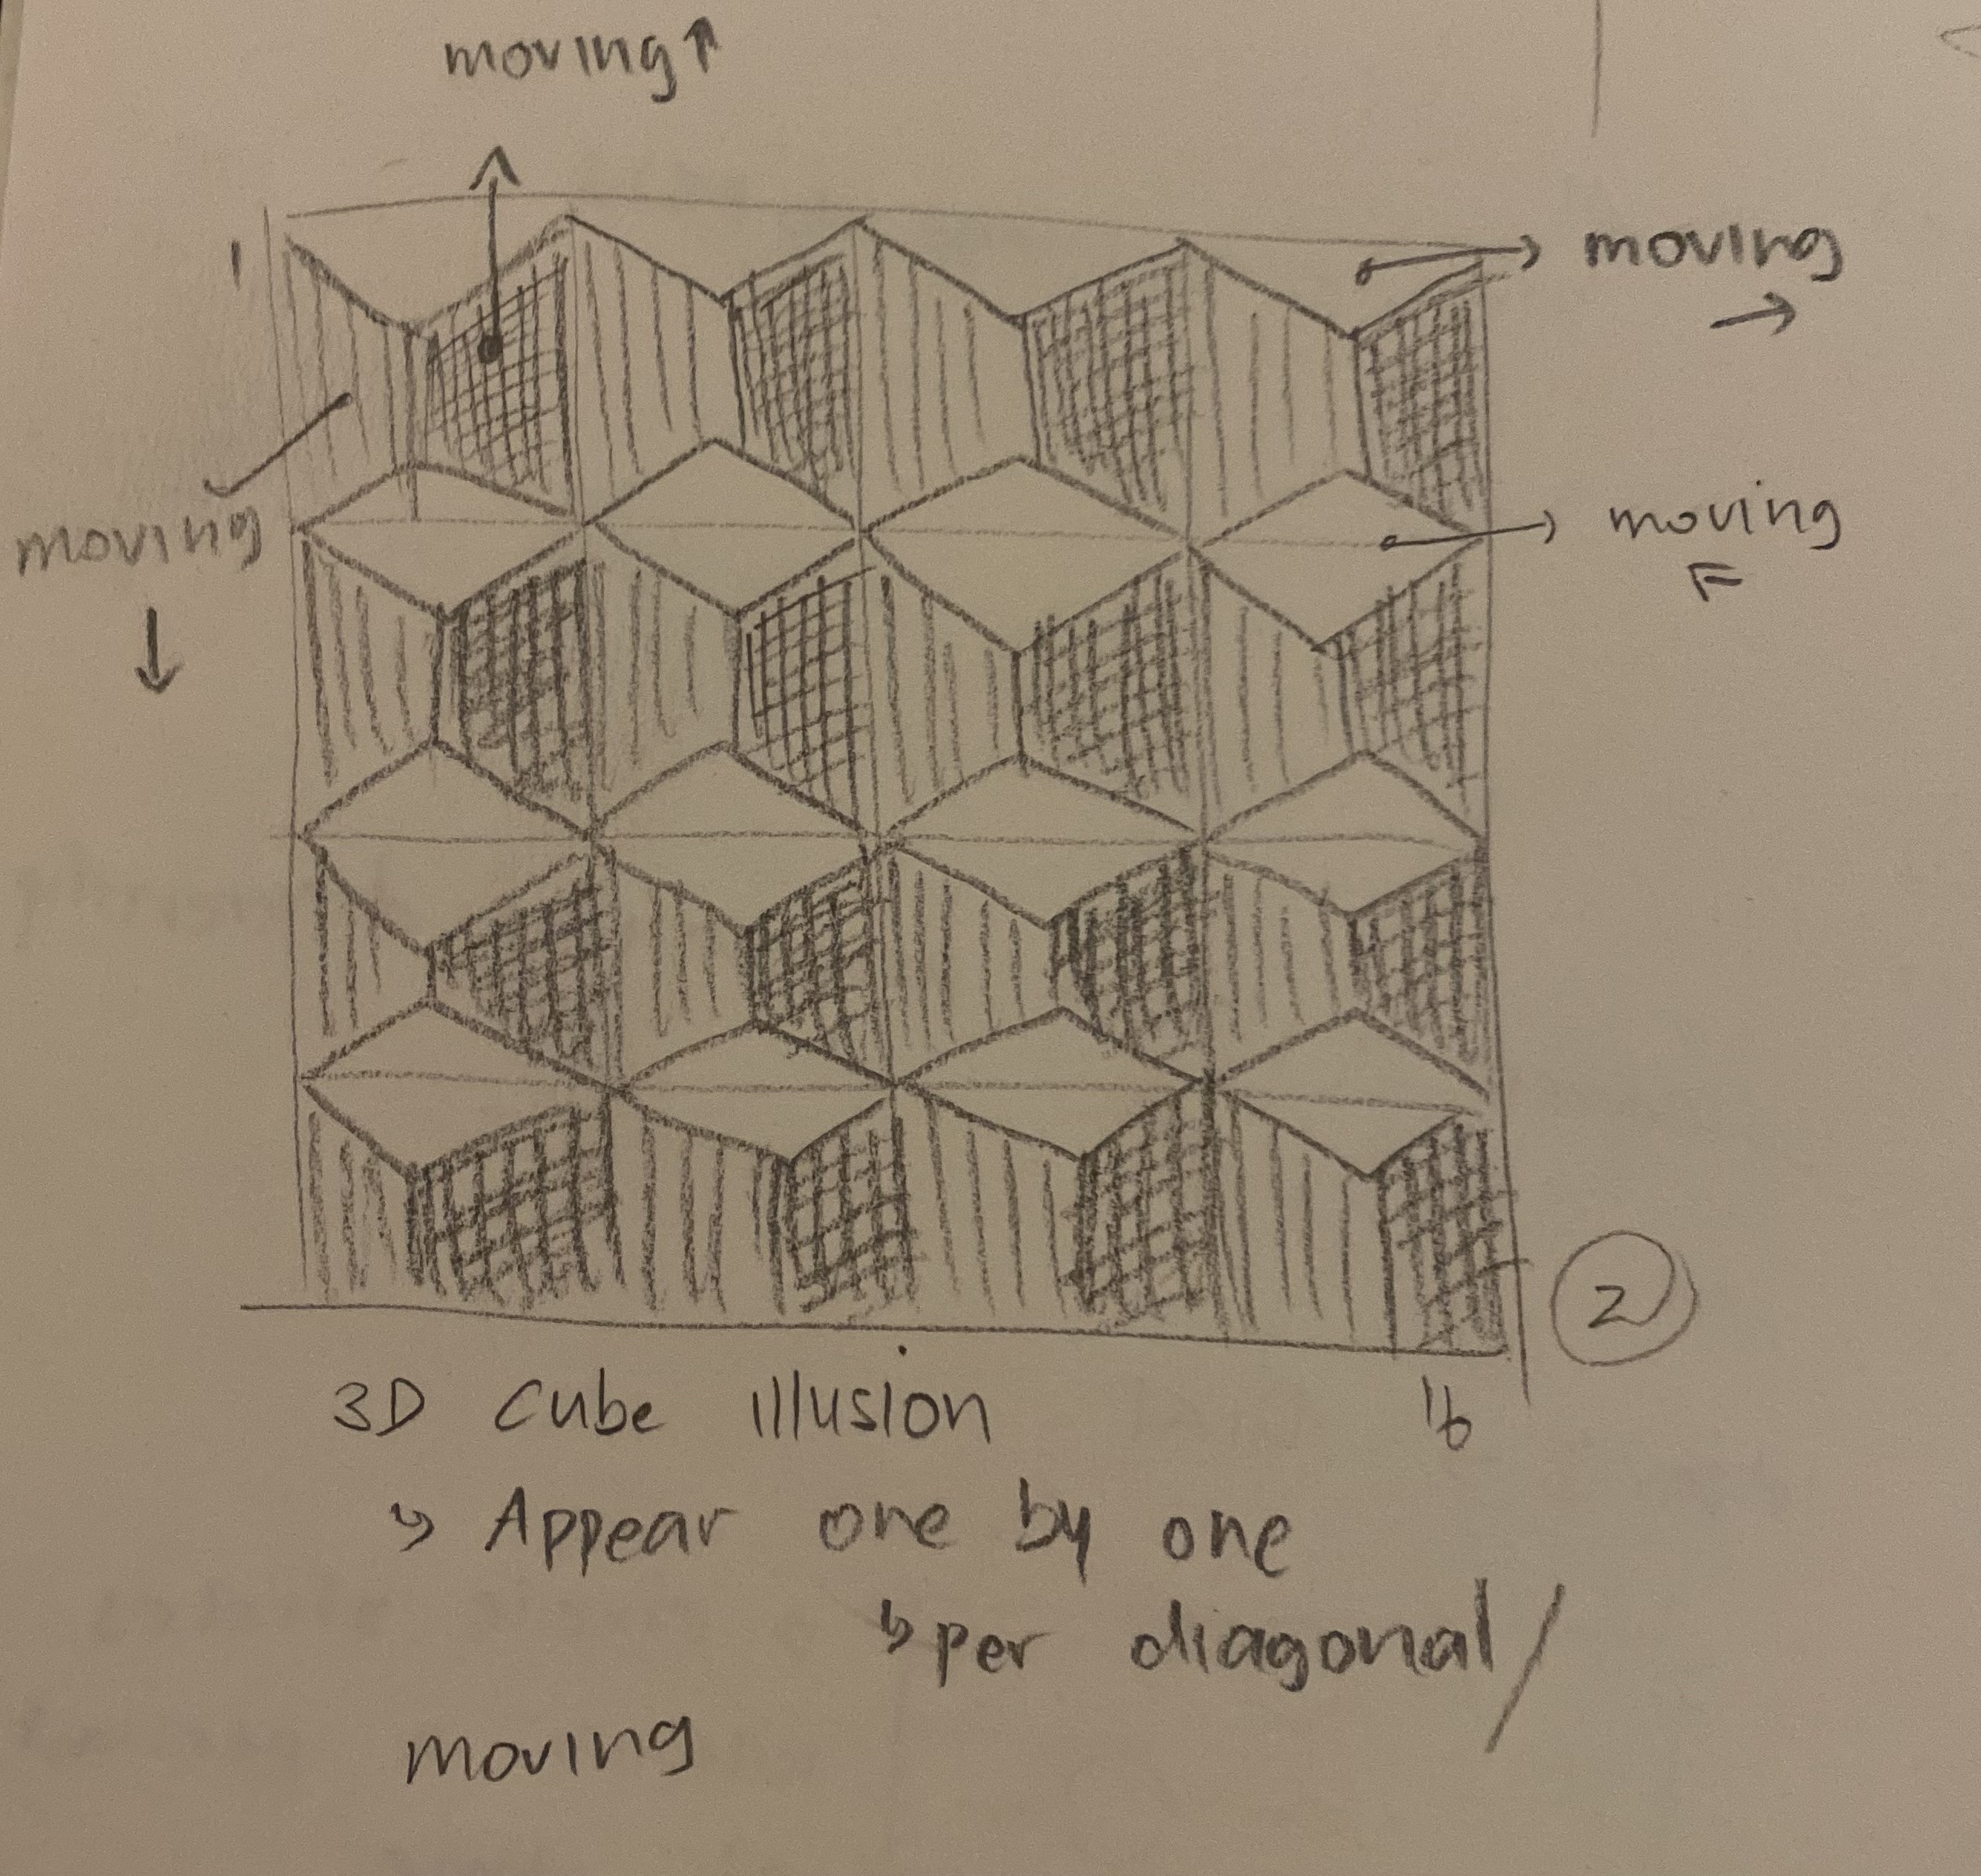 moving ↑
1
moving
→
moving
↓
moving
2
3D Cube illusion
16
↳ Appear one by one
↳ per diagonal /
moving